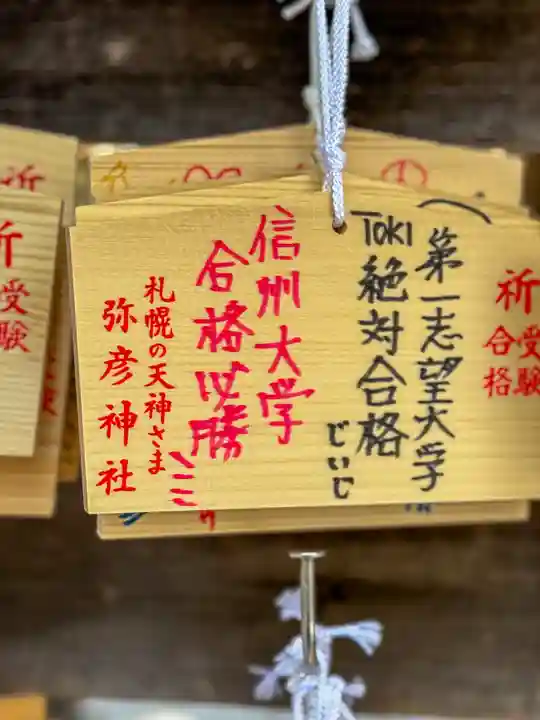 祈
受験
合格
第一志望大学
TOKI
絶対合格
じぃじ
信州大学
合格必勝
札幌の天神さま
弥彦神社
祈
受験
祈